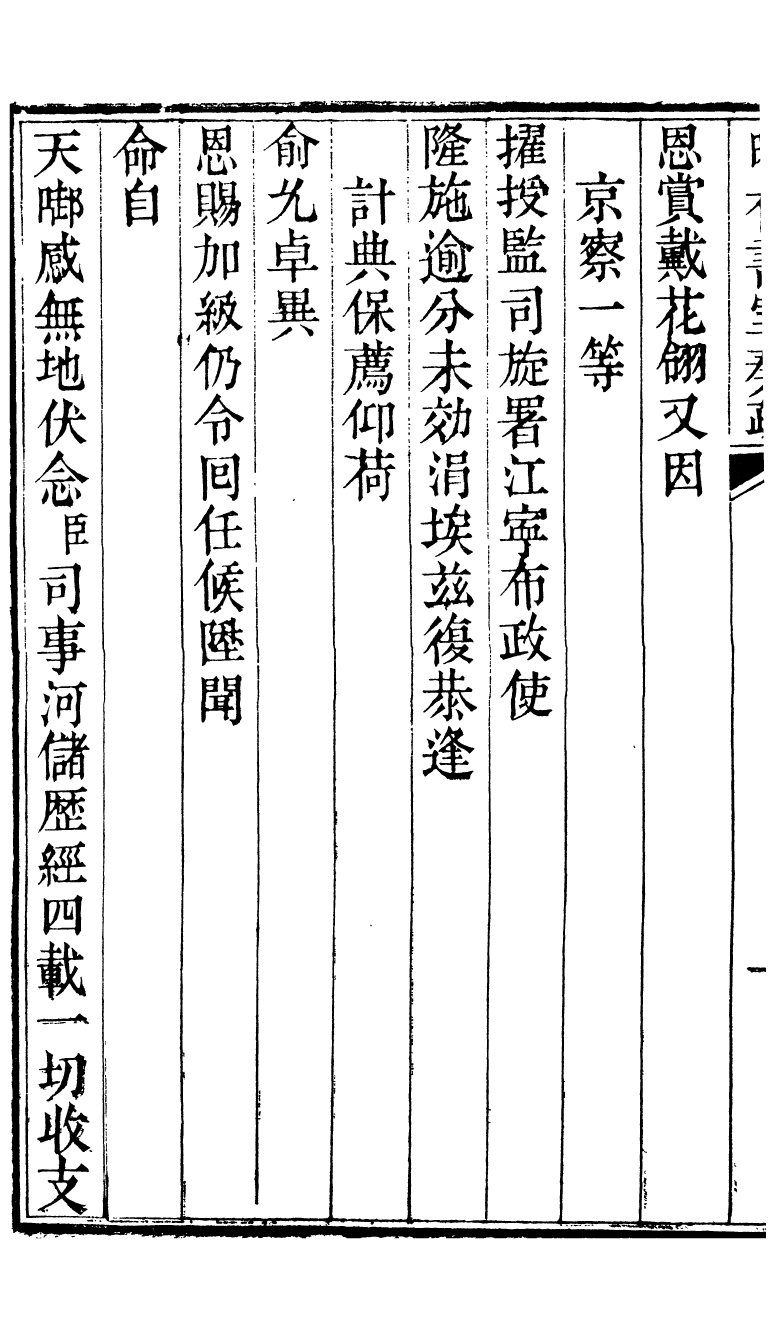 恩賞戴花翎又因
京察一等
擢授監司旋署江寧布政使
隆施逾分未効涓埃茲復恭逢
計典保薦仰荷
俞允卓異
恩賜加級仍令囘任候陞聞
命自
天啣感無地伏念臣司事河儲歷經四載一切收支